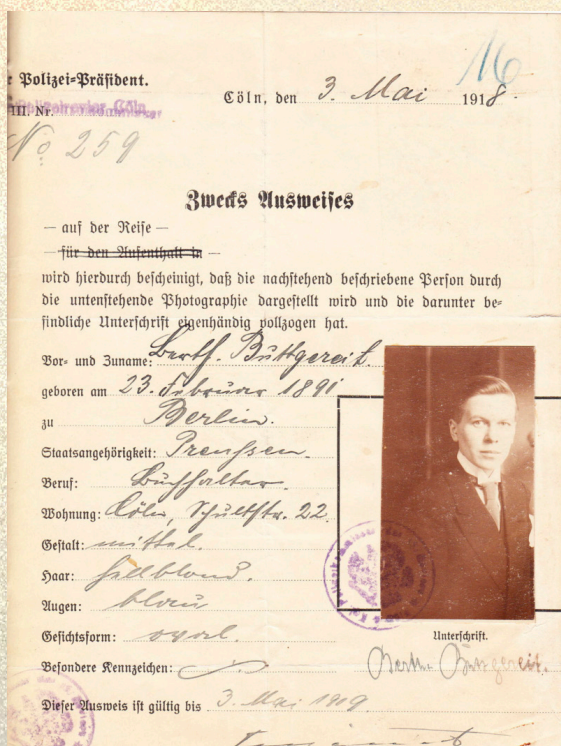 r Polizei-Präsident.
16
III. Nr.
Cöln, den 3. Mai 1918.
No 259
Zwecks Ausweises
— auf der Reise —
— für den Aufenthalt in —
wird hierdurch bescheinigt, daß die nachstehend beschriebene Person durch
die untenstehende Photographie dargestellt wird und die darunter be-
findliche Unterschrift eigenhändig vollzogen hat.
Vor- und Zuname: Berth. Buttgereit.
geboren am 23. Februar 1891
zu Berlin.
Staatsangehörigkeit: Preußen.
Beruf: Buchhalter.
Wohnung: Cöln, 22.
Gestalt: mittel.
Haar: hellblond.
Augen: blau
Gesichtsform: oval.
Unterschrift.
Besondere Kennzeichen:
Berth. Buttgereit.
Dieser Ausweis ist gültig bis 3. Mai 1919